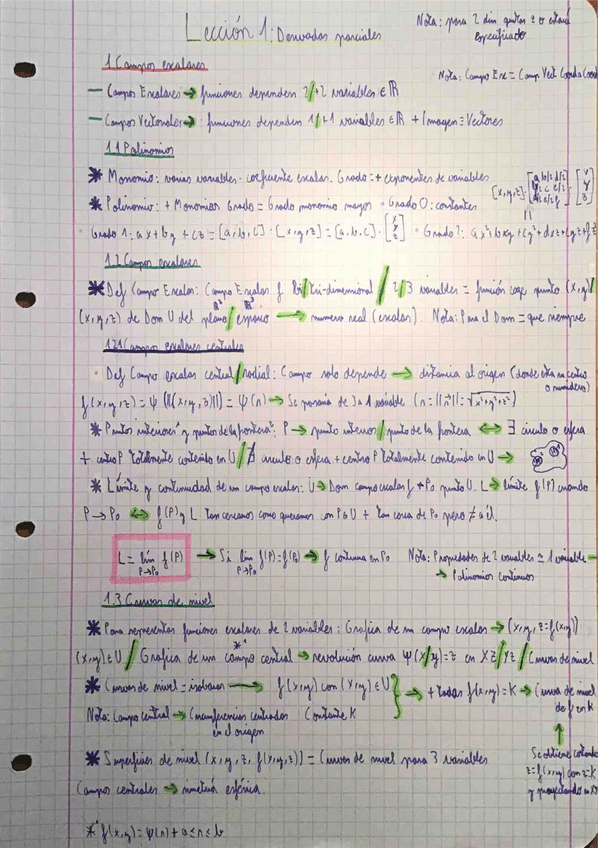 Lección 1: Derivadas parciales
Nota: para 2 dim quitas z o estará
especificado
1 Campos escalares
Nota: Campo Esc = Camp Vect
— Campos Escalares → funciones dependen 2/+2 variables ∈ ℝ
— Campos Vectoriales → funciones dependen 1/+1 variables ∈ ℝ + Imagen = Vectores
1.1 Polinomios
* Monomio: varias variables · coeficiente escalar. Grado = + exponentes de variables
* Polinomio: + Monomios Grado = Grado monomio mayor · Grado 0: constantes
· Grado 1: ax + by + cz = [a,b,c] · [x,y,z] = [a,b,c] · [x y z] · Grado 2: ax²+bxy+cy²+dxz+eyz+fz²
1.2 Campos escalares
* Def Campo Escalar: Campo Escalar f Bi/tri-dimensional / 2/3 variables = función coge punto (x,y)/
(x,y,z) de Dom U del plano/espacio → numero real (escalar). Nota: Para el Dom = que siempre
ℝ² ℝ³
1.2.1 Campos escalares centrales
· Def Campo escalar central/radial: Campo solo depende → distancia al origen (donde esta su centro
o numidero)
f(x,y,z) = ψ (||(x,y,z)||) = ψ(r) → Se pasaría de 3 a 1 variable (r = ||r⃗|| = √x²+y²+z²)
* Puntos interiores y puntos de la frontera: P → punto interior/punto de la frontera ⇔ ∃ circulo o esfera
+ centro P totalmente contenido en U / ∄ circulo o esfera + centro P totalmente contenido en U →
* Límite y continuidad de un campo escalar: U → Dom campo escalar f + P₀ punto U. L → límite f(P) cuando
P → P₀ ⇔ f(P) y L tan cercanos como queramos con P ∈ U + tan cerca de P₀ pero ≠ a él.
L = lim f(P)
P→P₀
→ Si lim f(P) = f(P₀) → f continua en P₀
P→P₀
Nota: Propiedades de 2 variables ≃ 1 variable →
→ Polinomios continuos
1.3 Curvas de nivel
* Para representar funciones escalares de 2 variables: Grafica de un campo escalar → (x,y,z=f(x,y))
(x,y) ∈ U / Grafica de un campo central → revolución curva ψ(x/y)=z en XZ/YZ / Curvas de nivel
* Curvas de nivel = isobaras → f(x,y) con (x,y) ∈ U
→ + todas f(x,y) = K → Curva de nivel
de f en K
Nota: Campo central → Circunferencias centradas
en el origen
Constante K
Se obtiene cortando
z = f(x,y) con z=K
y proyectando en XY
* Superficies de nivel (x,y,z, f(x,y,z)) = Curvas de nivel para 3 variables
Campos centrales → simetría esférica.
* f(x,y) = ψ(r) + a≤r≤b